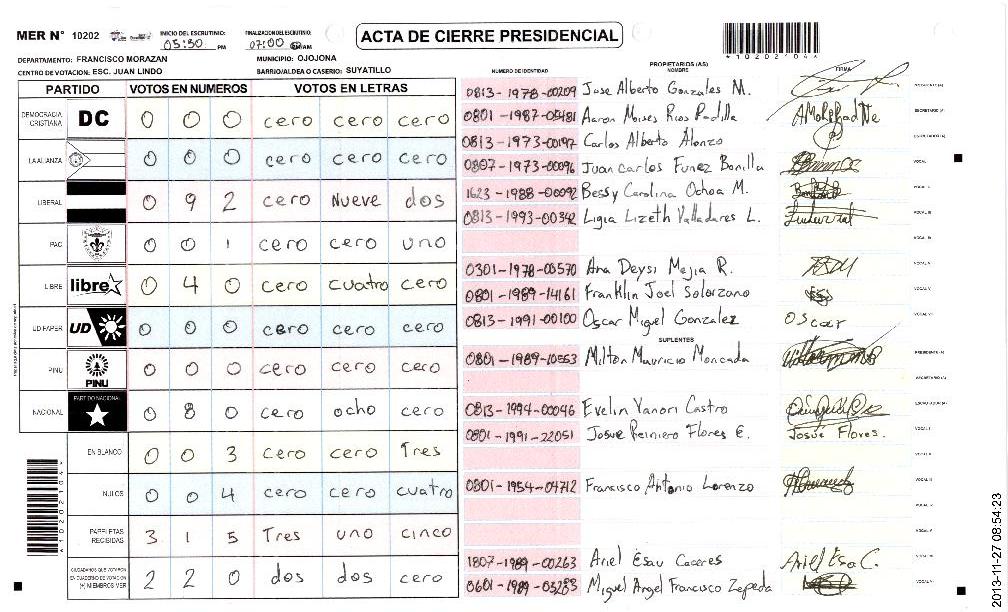 MER N° 10202
INICIO DEL ESCRUTINIO: 05:30 PM
FINALIZACION DEL ESCRUTINIO: 07:00 AM
ACTA DE CIERRE PRESIDENCIAL
*10202104*
DEPARTAMENTO: FRANCISCO MORAZAN
MUNICIPIO: OJOJONA
CENTRO DE VOTACION: ESC. JUAN LINDO
BARRIO/ALDEA O CASERIO: SUYATILLO
PARTIDO VOTOS EN NUMEROS VOTOS EN LETRAS
DEMOCRACIA CRISTIANA DC 0 0 0 cero cero cero
LA ALIANZA 0 0 0 cero cero cero
LIBERAL 0 9 2 cero Nueve dos
PAC 0 0 1 cero cero uno
LIBRE libre 0 4 0 cero cuatro cero
UD FAPER UD 0 0 0 cero cero cero
PINU PINU 0 0 0 cero cero cero
NACIONAL PARTIDO NACIONAL 0 8 0 cero ocho cero
EN BLANCO 0 0 3 cero cero Tres
NULOS 0 0 4 cero cero cuatro
PAPELETAS RECIBIDAS 3 1 5 Tres uno cinco
CIUDADANOS QUE VOTARON EN CUADERNO DE VOTACION (+) MIEMBROS MER 2 2 0 dos dos cero
*10202104*
NUMERO DE IDENTIDAD
PROPIETARIOS (AS)
NOMBRE
FIRMA
0813-1978-00209 Jose Alberto Gonzales M. PRESIDENTE (A)
0801-1987-05481 Aaron Moises Rios Padilla SECRETARIO (A)
0813-1973-00197 Carlos Alberto Alonzo ESCRUTADOR (A)
0807-1973-00096 Juan Carlos Funez Bonilla VOCAL I
1623-1988-00092 Bessy Carolina Ochoa M. VOCAL II
0813-1993-00342 Ligia Lizeth Valladares L. VOCAL III
VOCAL IV
0301-1978-00570 Ana Deysi Mejia R. VOCAL V
0801-1989-14161 Franklin Joel Solorzano
0813-1991-00100 Oscar Miguel Gonzalez Oscar
SUPLENTES
0801-1989-10553 Milton Mauricio Moncada PRESIDENTE (A)
SECRETARIO (A)
0813-1994-00046 Evelin Yanori Castro ESCRUTADOR (A)
0801-1991-22051 Josue Reiniero Flores E. Josué Flores. VOCAL I
VOCAL II
0801-1954-04712 Francisco Antonio Lorenzo VOCAL III
1807-1989-00263 Ariel Esau Caceres Ariel Esa C.
0601-1989-03283 Miguel Angel Francisco Zepeda
2013-11-27 08:54:23